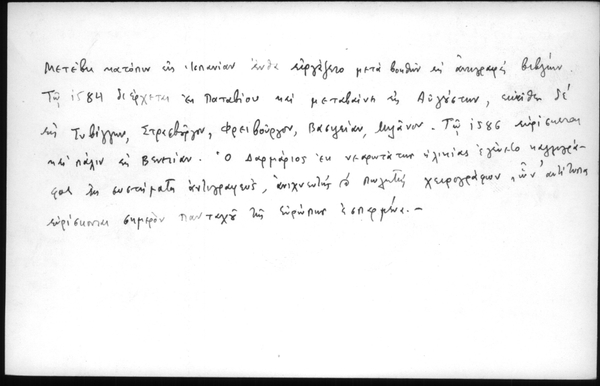 Μετέβη κατόπιν εἰς Ἱσπανίαν ἔνθα εἰργάζετο μετὰ βοηθῶν εἰς ἀντιγραφάς βιβλίων.
Τῷ 1584 διέρχεται ἐκ Παταβίου καὶ μεταβαίνει εἰς Αὐγούσταν, ἐκεῖθεν δέ
εἰς Τυβίγγην, Στρασβοῦργον, Φρειβούργον, Βασιλείαν, Μιλᾶνον. Τῷ 1586 εὑρίσκεται
καὶ πάλιν εἰς Βενετίαν. Ὁ Δαρμάριος ἐκ νεαρωτάτης ἡλικίας ἐγένετο καλλιγρά-
φος ἐκ συστήματος ἀντιγραφεύς, ἀνιχνευτής καὶ πωλητής χειρογράφων, ὧν ἀντίτυπα
εὑρίσκονται σήμερον πανταχοῦ τῆς Εὐρώπης ἐσπαρμένα.–